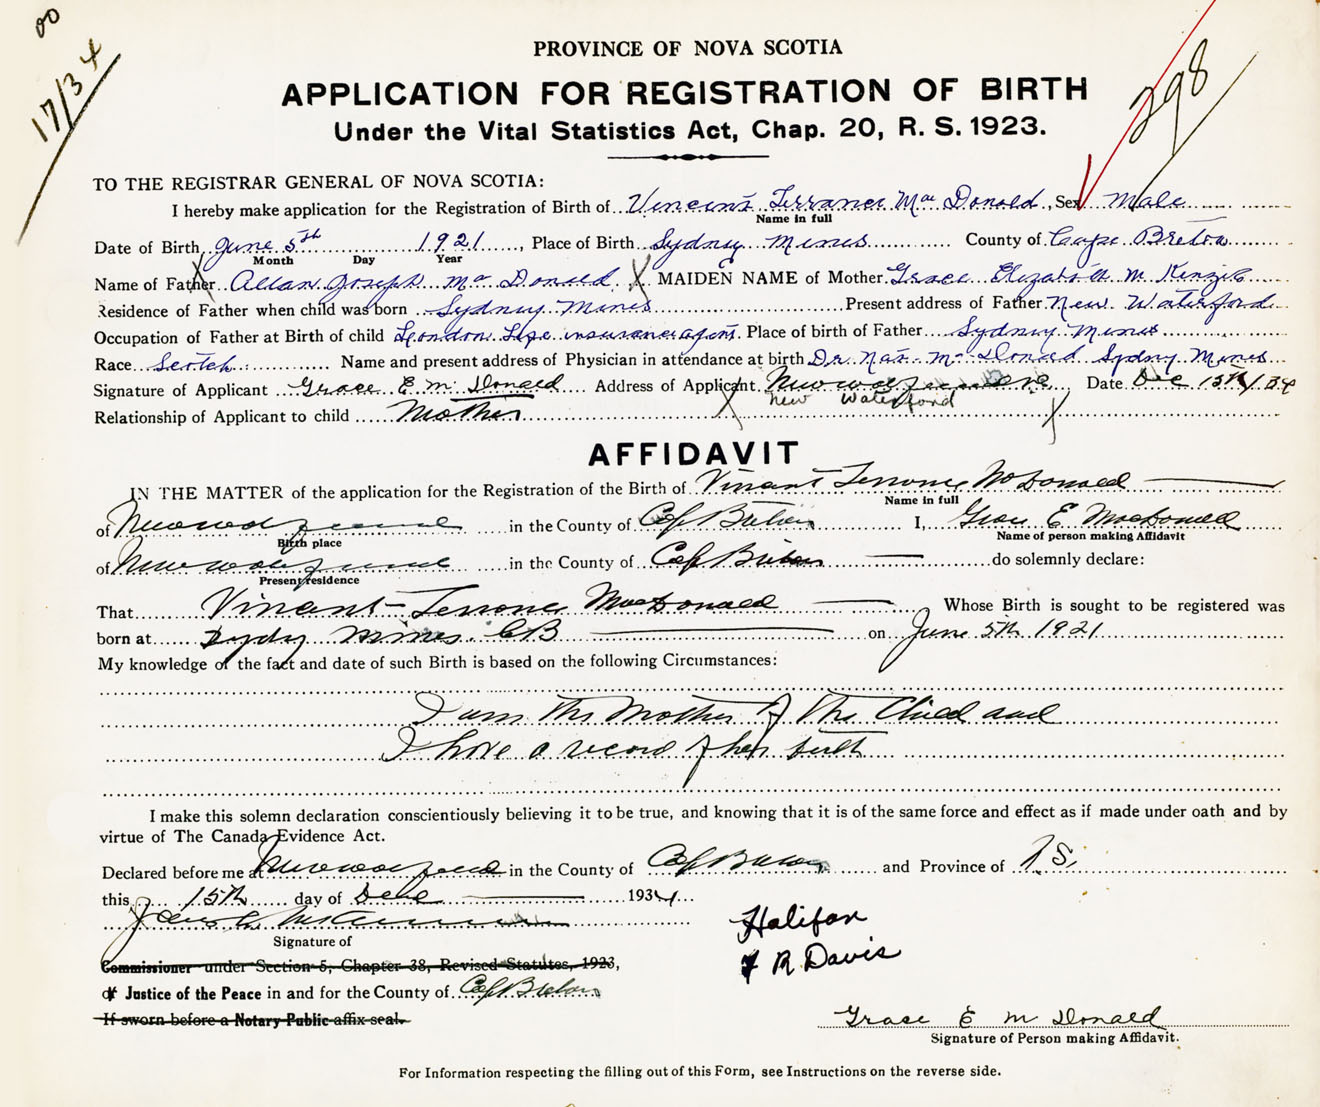 00
17/34
298
PROVINCE OF NOVA SCOTIA
APPLICATION FOR REGISTRATION OF BIRTH
Under the Vital Statistics Act, Chap. 20, R. S. 1923.
TO THE REGISTRAR GENERAL OF NOVA SCOTIA:
I hereby make application for the Registration of Birth of Vincent Terrance Mac Donald, Sex Male
Name in full
Date of Birth June 5th 1921, Place of Birth Sydney Mines County of Cape Breton
Month Day Year
Name of Father Allan Joseph Mac Donald X MAIDEN NAME of Mother Grace Elizabeth McKenzie
Residence of Father when child was born Sydney Mines Present address of Father New Waterford
Occupation of Father at Birth of child London Life insurance agent. Place of birth of Father Sydney Mines
Race Scotch Name and present address of Physician in attendance at birth Dr. McDonald Sydney Mines
Signature of Applicant Grace E McDonald Address of Applicant New Waterford Date Dec 15th/34
New Waterford
Relationship of Applicant to child Mother
AFFIDAVIT
IN THE MATTER of the application for the Registration of the Birth of Vincent Terrance McDonald
Name in full
of New Waterford in the County of Cape Breton I, Grace E MacDonald
Birth place Name of person making Affidavit
of New Waterford in the County of Cape Breton do solemnly declare:
Present residence
That Vincent Terrance MacDonald Whose Birth is sought to be registered was
born at Sydney Mines CB on June 5th 1921
My knowledge of the fact and date of such Birth is based on the following Circumstances:
I am the Mother of the Child and
I have a record of her birth
I make this solemn declaration conscientiously believing it to be true, and knowing that it is of the same force and effect as if made under oath and by
virtue of The Canada Evidence Act.
Declared before me at New Waterford in the County of Cape Breton and Province of N.S.
this 15th day of Dec 1934.
Signature of
Commissioner under Section 5, Chapter 38, Revised Statutes, 1923,
of Justice of the Peace in and for the County of Cape Breton
If sworn before a Notary Public affix seal.
Halifax
F R Davis
Grace E McDonald
Signature of Person making Affidavit.
For Information respecting the filling out of this Form, see Instructions on the reverse side.